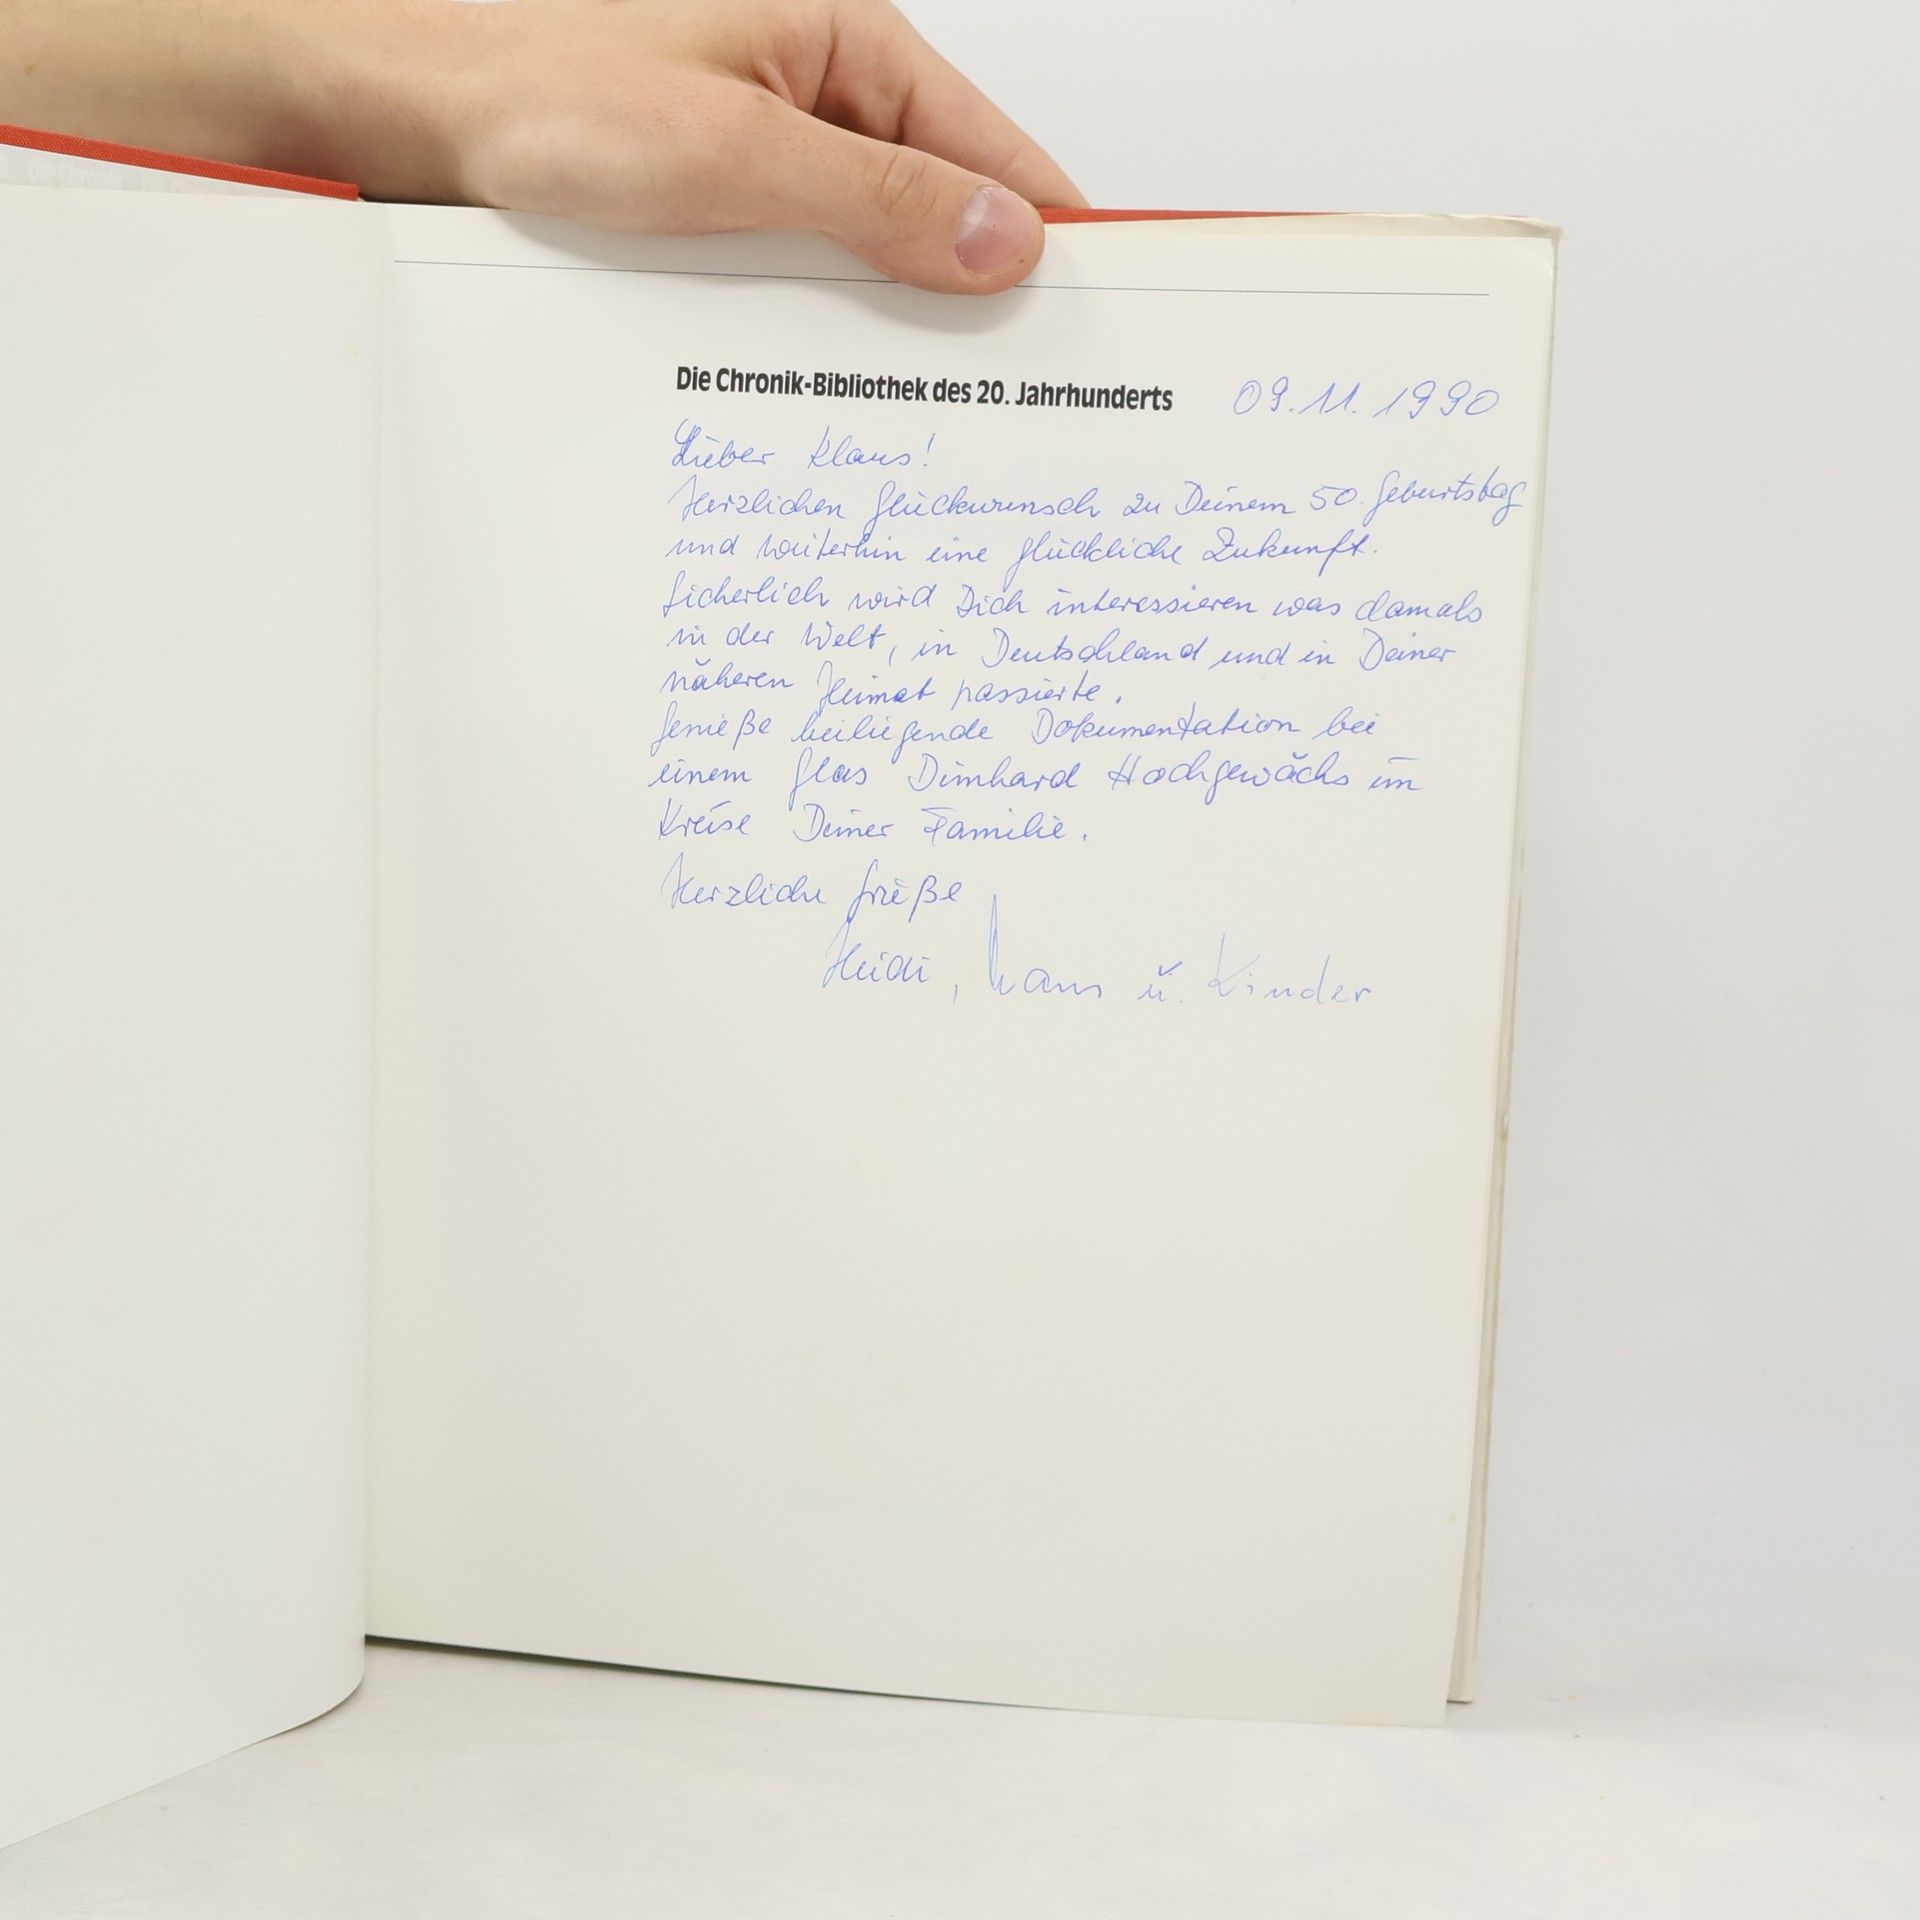 Die Chronik-Bibliothek des 20. Jahrhunderts 09.11.1990
Lieber Klaus!
Herzlichen Glückwunsch zu Deinem 50. Geburtstag
und weiterhin eine glückliche Zukunft.
Sicherlich wird Dich interessieren was damals
in der Welt, in Deutschland und in Deiner
näheren Heimat passierte.
Genieße beiliegende Dokumentation bei
einem Glas Deinhard Hochgewächs im
Kreise Deiner Familie.
Herzliche Grüße
Heidi, Hans u. Kinder